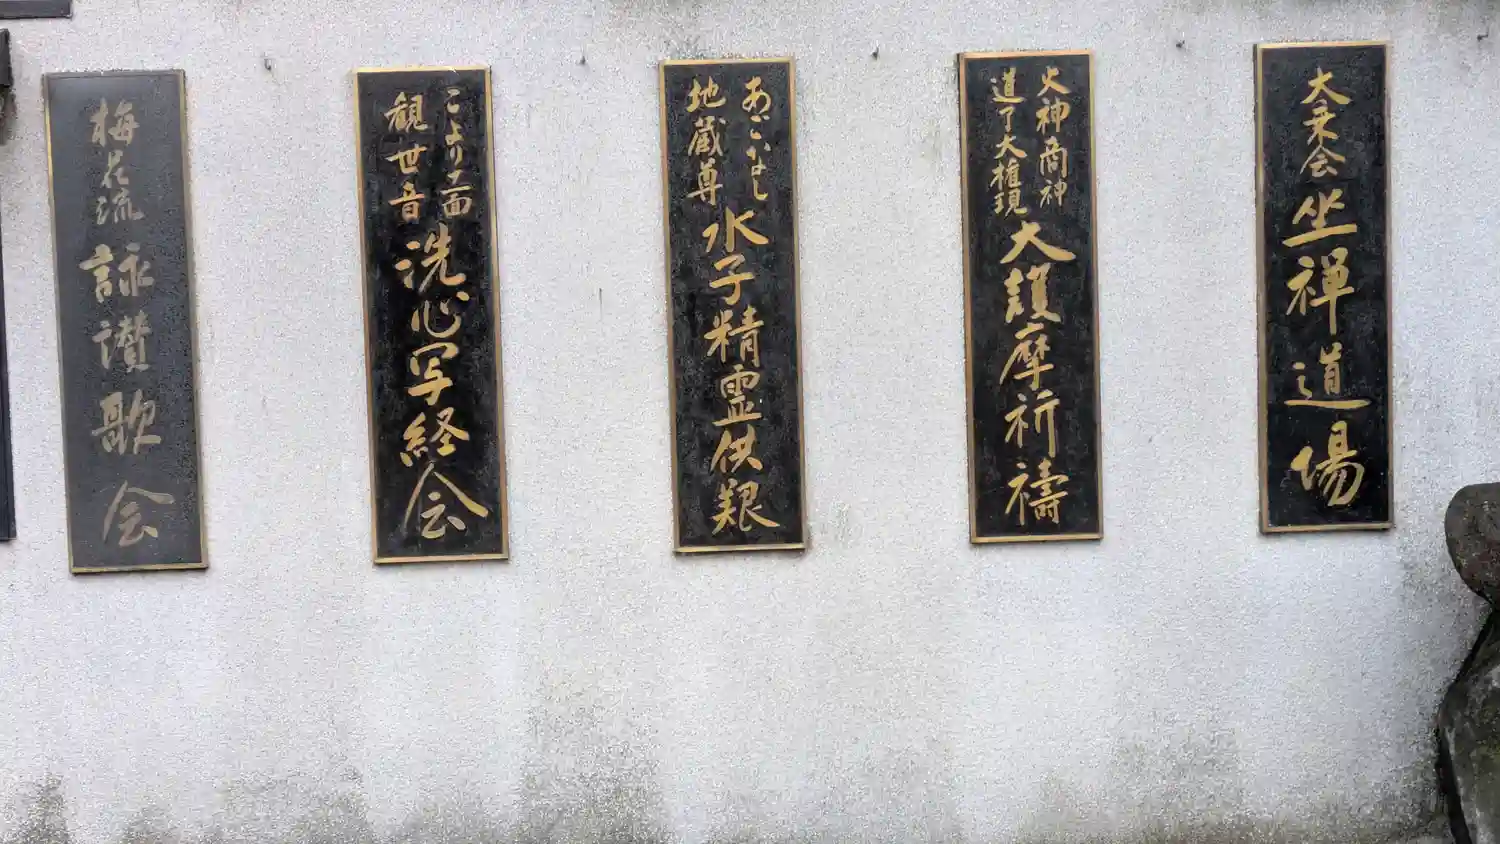 大乗会坐禅道場
火神商神
道了大権現
大護摩祈禱
あごなし
地蔵尊
水子精霊供
観世音
洗心写経会
梅花流詠讃歌会